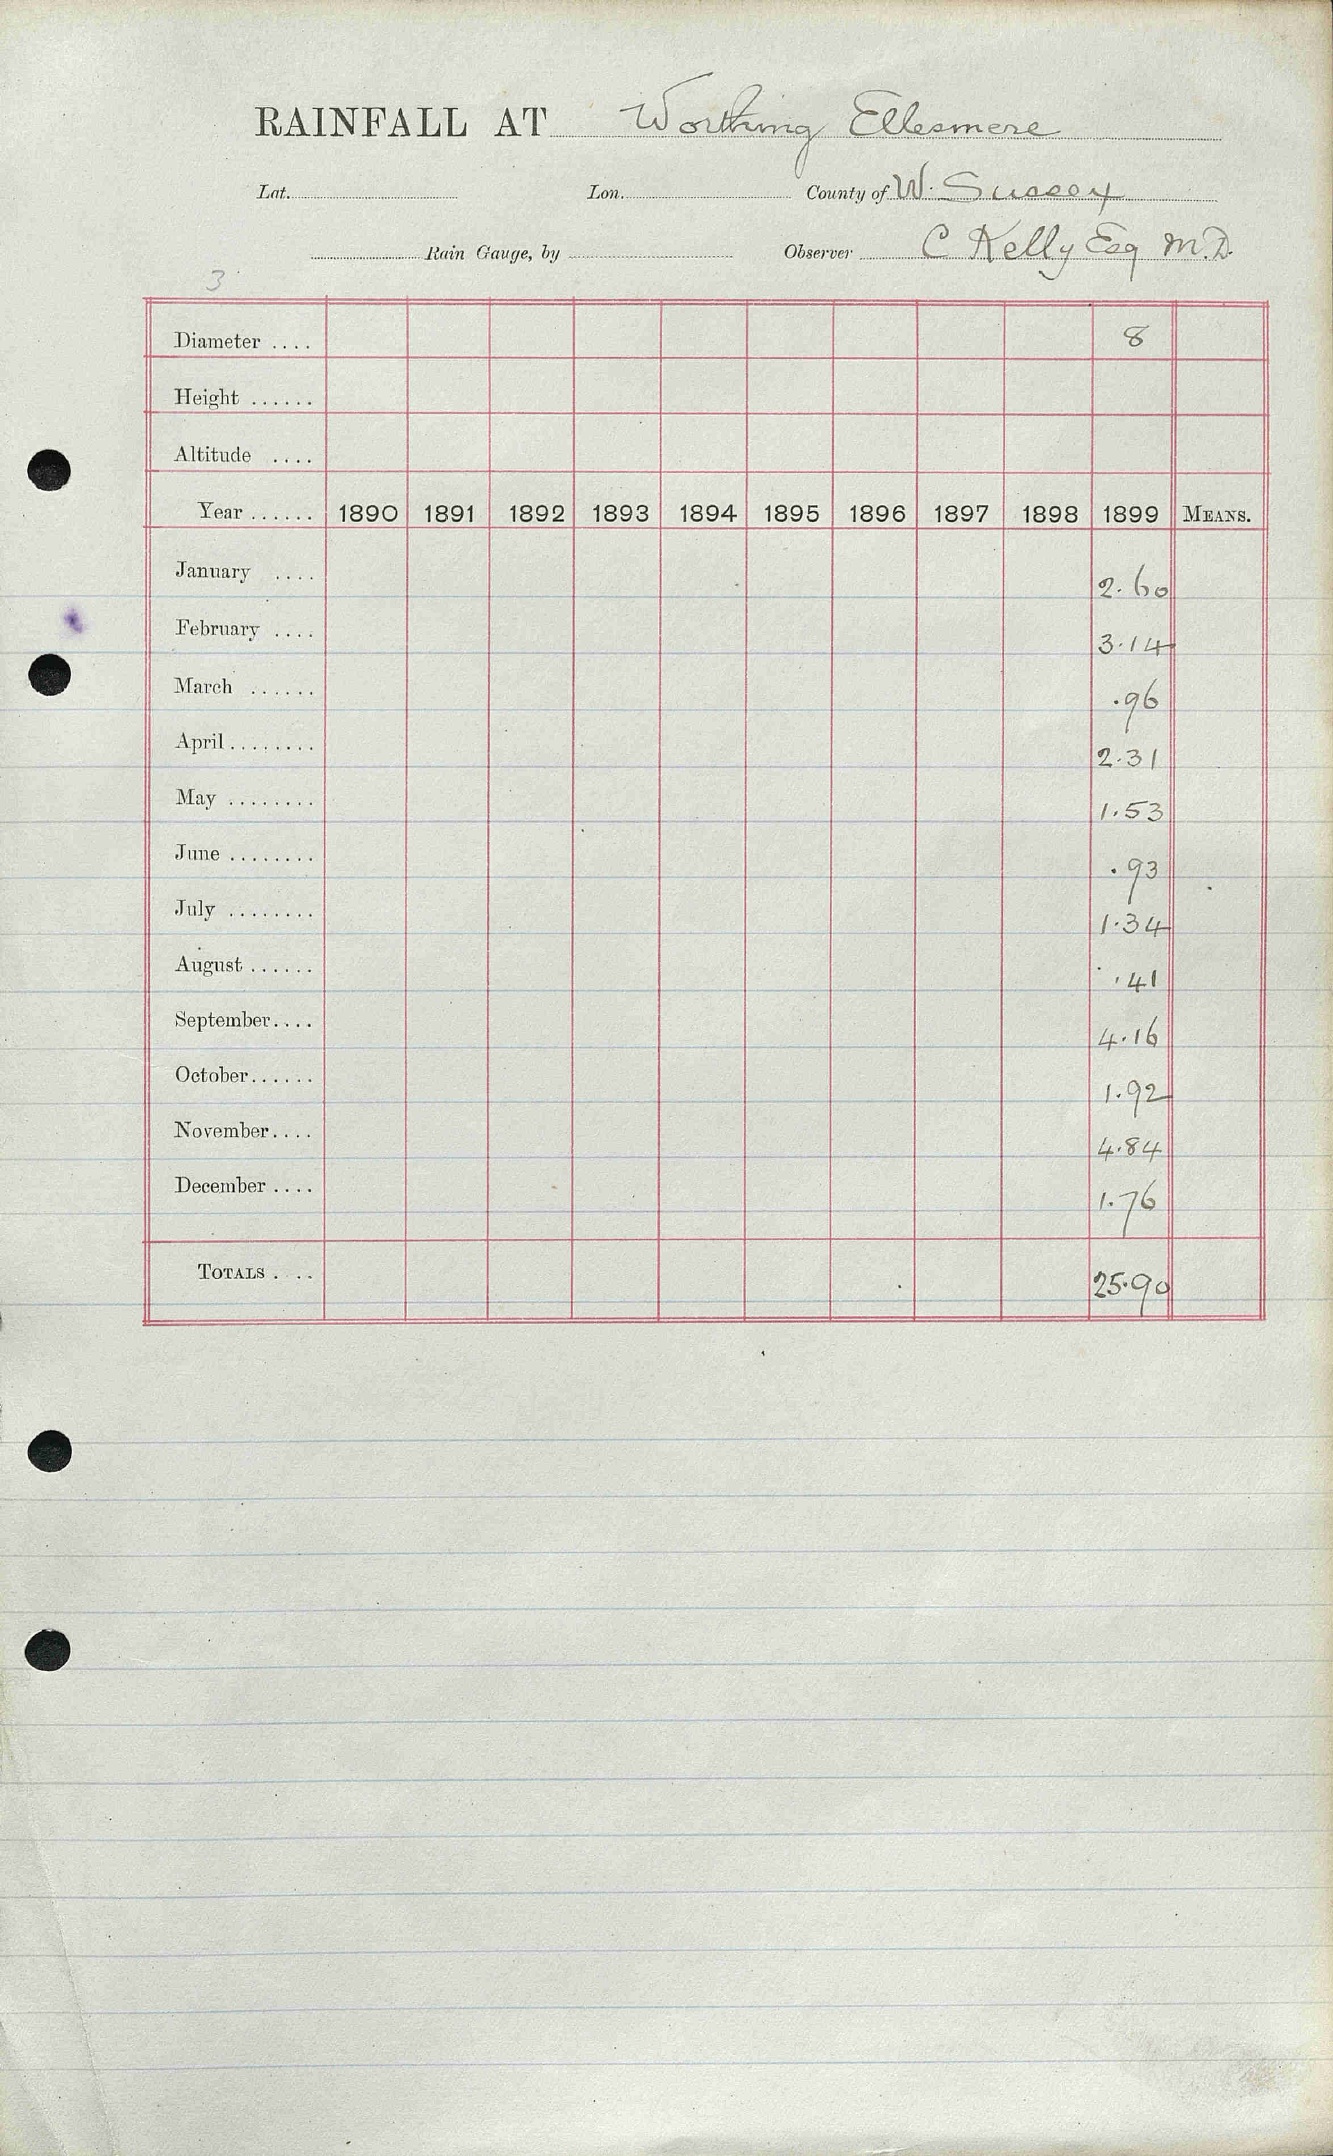 RAINFALL AT Worthing Ellesmere
Lat. Lon. County of W. Sussex
Rain Gauge, by Observer C Kelly Esq M.D.
3
Diameter .... 8
Height ......
Altitude ....
Year ...... 1890 1891 1892 1893 1894 1895 1896 1897 1898 1899 MEANS.
January .... 2.60
February .... 3.14
March ...... .96
April ........ 2.31
May ........ 1.53
June ........ .93
July ........ 1.34
August ...... .41
September.... 4.16
October...... 1.92
November.... 4.84
December .... 1.76
TOTALS .... 25.90